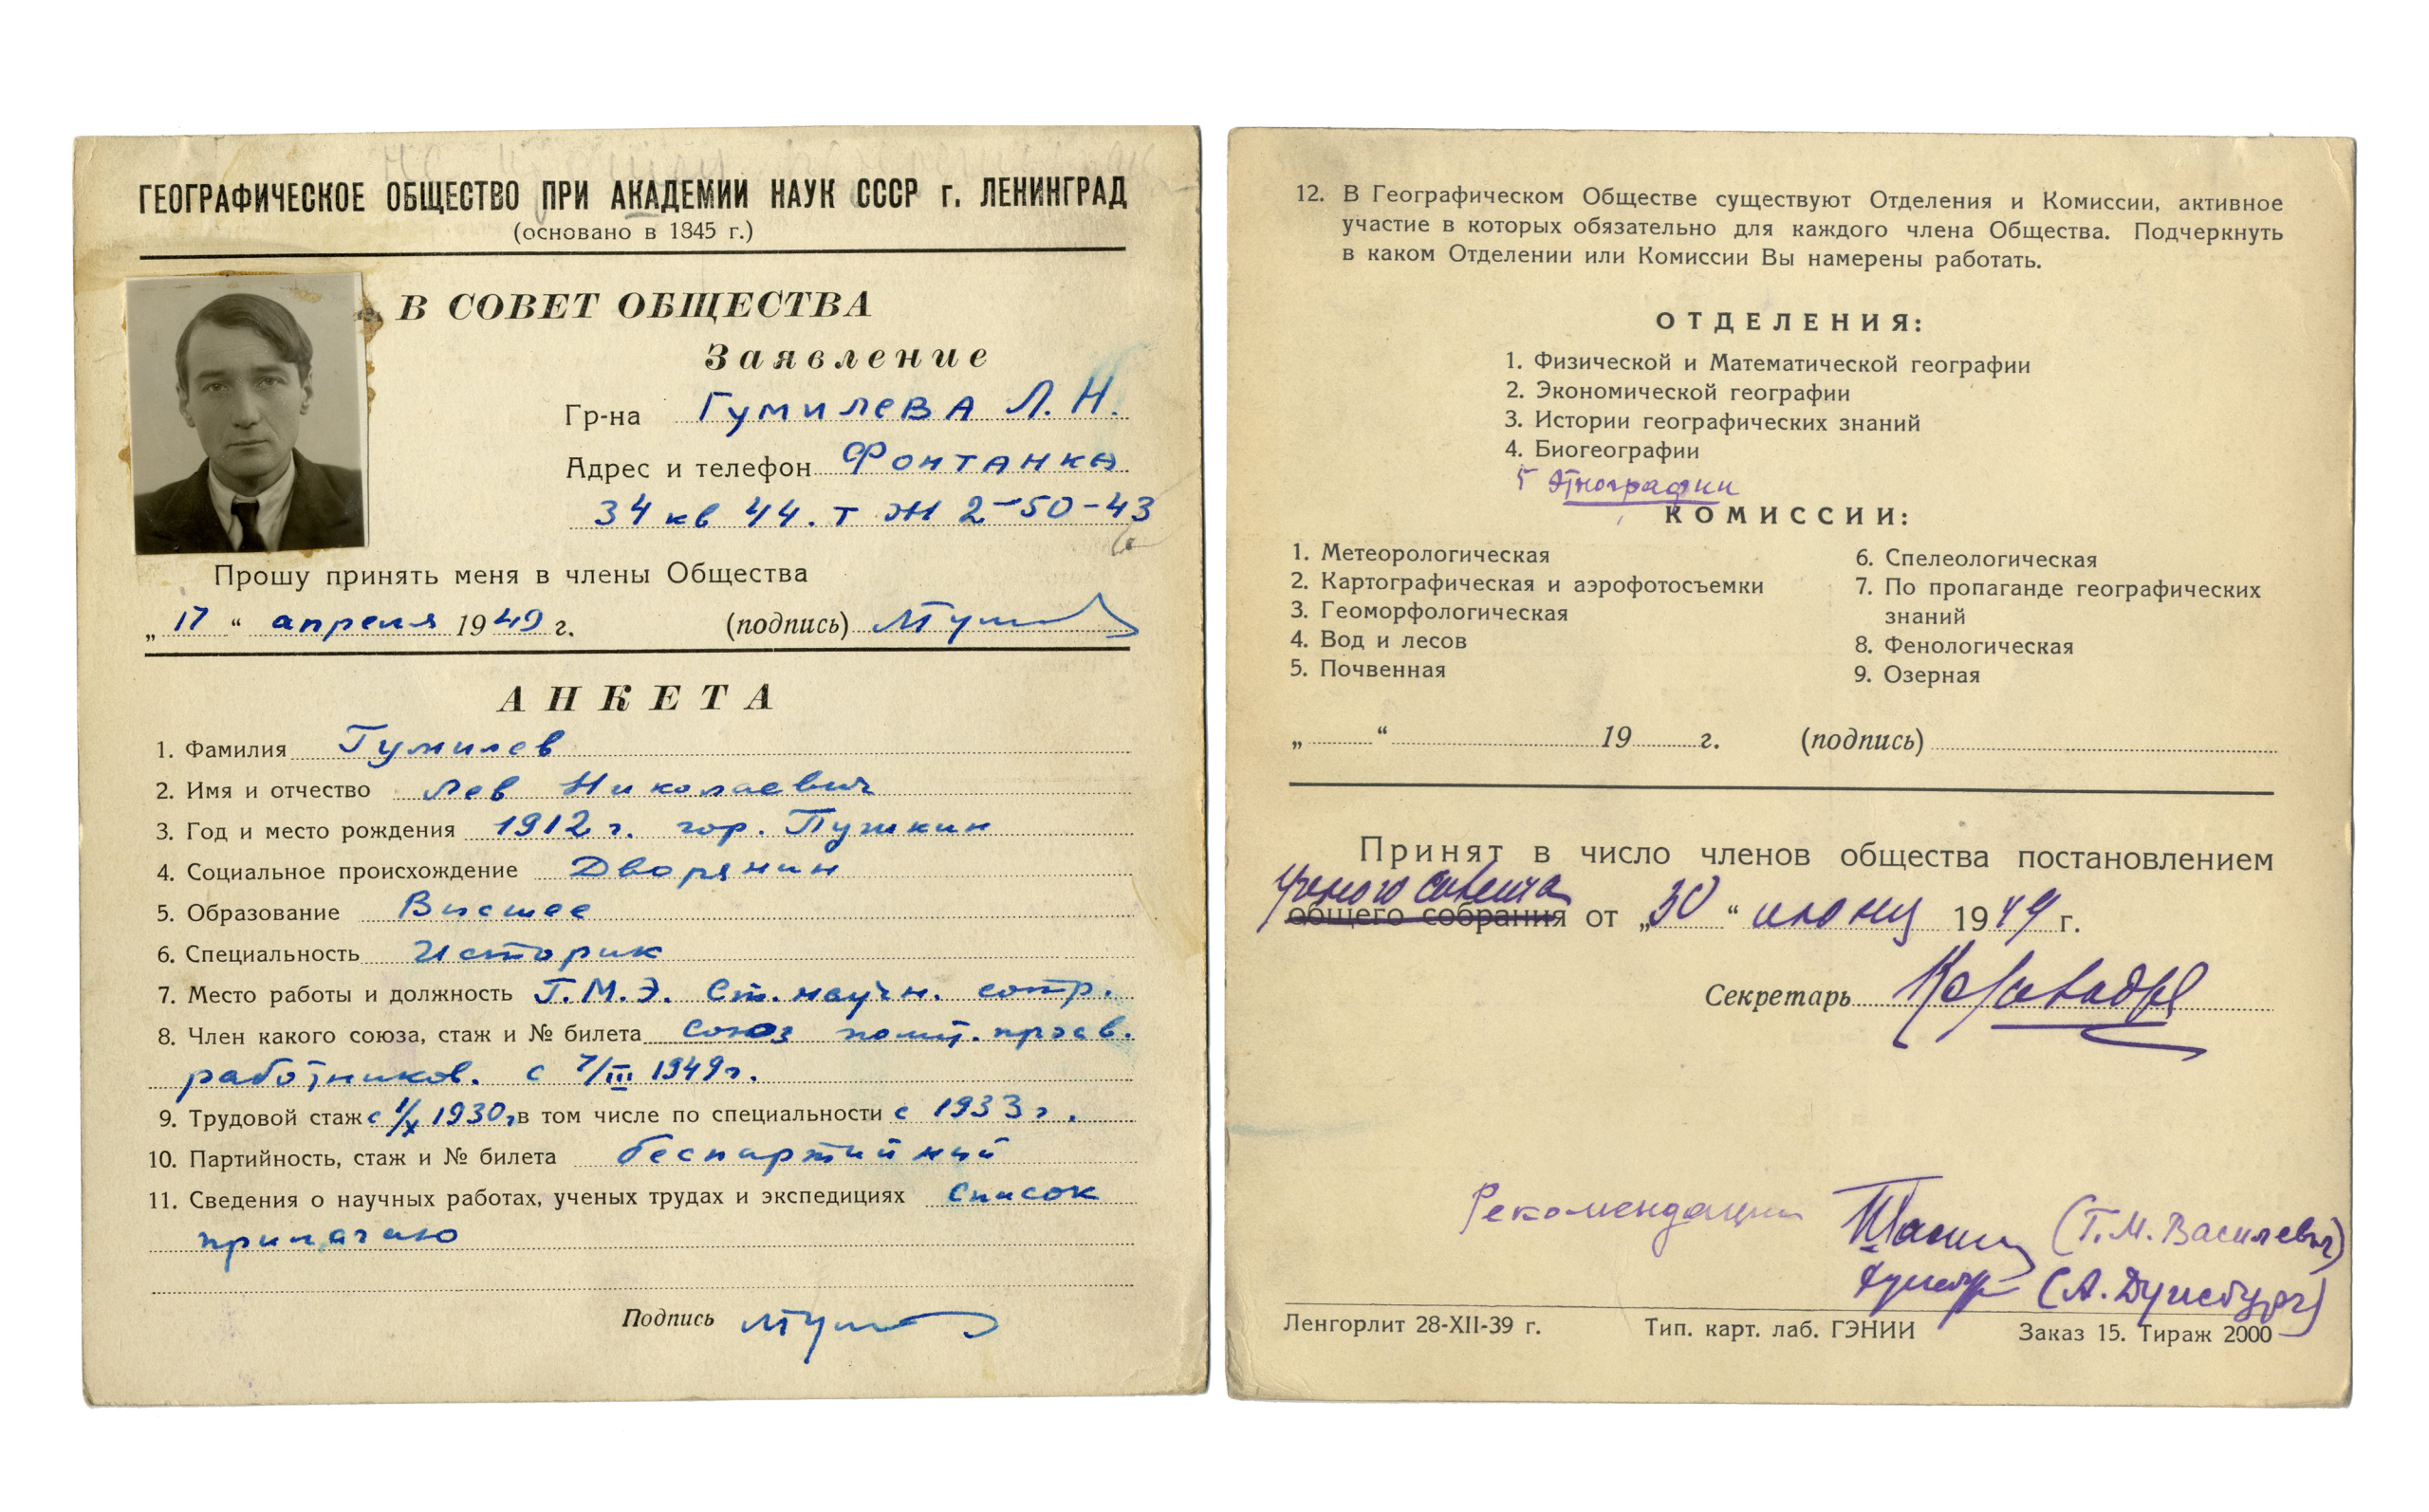 ГЕОГРАФИЧЕСКОЕ ОБЩЕСТВО ПРИ АКАДЕМИИ НАУК СССР г. ЛЕНИНГРАД
(основано в 1845 г.)
В СОВЕТ ОБЩЕСТВА
Заявление
Гр-на Гумилева Л. Н.
Адрес и телефон Фонтанка
34 кв 44. т Ж 2-50-43
Прошу принять меня в члены Общества
„17“ апреля 1949 г. (подпись)
АНКЕТА
1. Фамилия Гумилев
2. Имя и отчество Лев Николаевич
3. Год и место рождения 1912 г. гор. Пушкин
4. Социальное происхождение Дворянин
5. Образование Высшее
6. Специальность Историк
7. Место работы и должность Г.М.Э. Ст. научн. сотр.
8. Член какого союза, стаж и № билета Союз полит. просв.
работников. с 7/III 1949 г.
9. Трудовой стаж с 1/X 1930 г в том числе по специальности с 1933 г.
10. Партийность, стаж и № билета беспартийный
11. Сведения о научных работах, ученых трудах и экспедициях Список
прилагаю
Подпись
12. В Географическом Обществе существуют Отделения и Комиссии, активное
участие в которых обязательно для каждого члена Общества. Подчеркнуть
в каком Отделении или Комиссии Вы намерены работать.
ОТДЕЛЕНИЯ:
1. Физической и Математической географии
2. Экономической географии
3. Истории географических знаний
4. Биогеографии
5 Этнографии
КОМИССИИ:
1. Метеорологическая
2. Картографическая и аэрофотосъемки
3. Геоморфологическая
4. Вод и лесов
5. Почвенная
6. Спелеологическая
7. По пропаганде географических
знаний
8. Фенологическая
9. Озерная
„ “ 19 г. (подпись)
Принят в число членов общества постановлением
Ученого Совета
общего собрания от „30“ июня 1949 г.
Секретарь
Рекомендации (Г. М. Василевич)
(А. Дуисбург)
Ленгорлит 28-XII-39 г. Тип. карт. лаб. ГЭНИИ Заказ 15. Тираж 2000